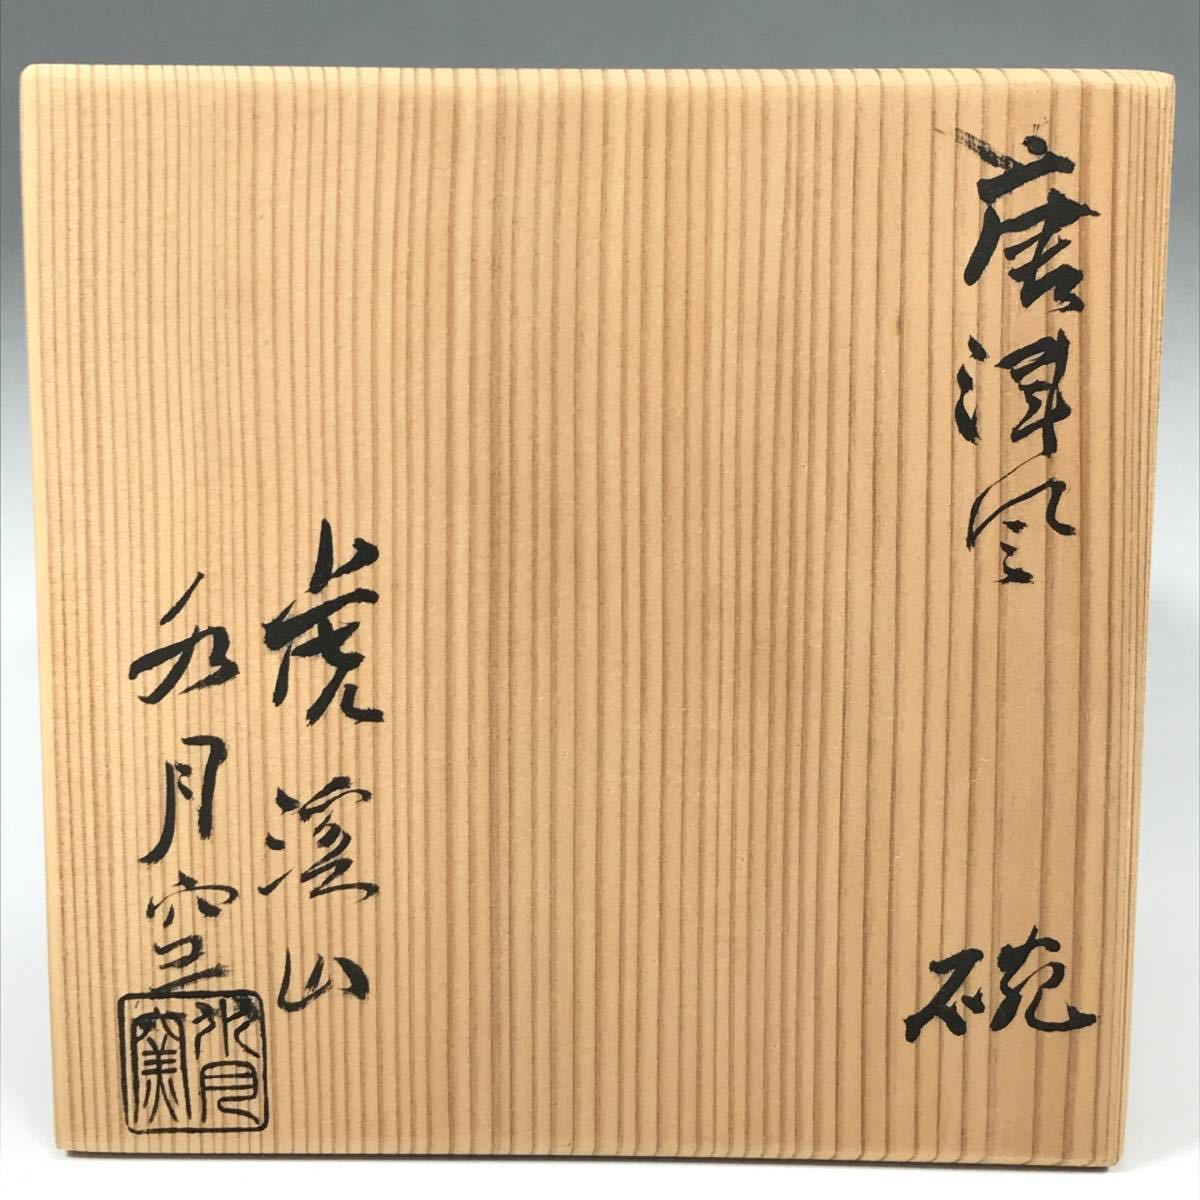 唐津風 碗
虎渓山
水月窯
水月窯